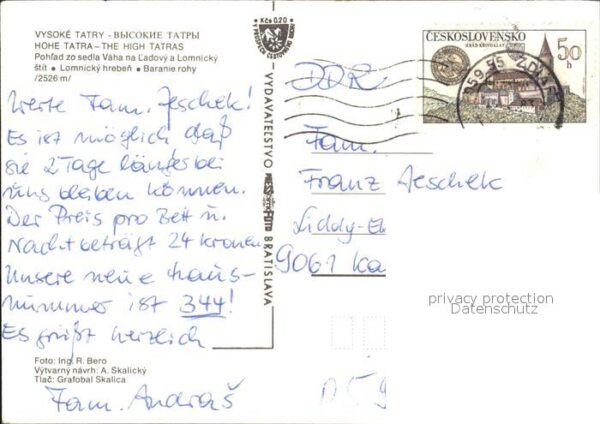 VYSOKÉ TATRY - ВЫСОКИЕ ТАТРЫ
HOHE TATRA - THE HIGH TATRAS
Pohľad zo sedla Váha na Ľadový a Lomnický
štít • Lomnický hrebeň • Baranie rohy
/2526 m/
Werte Fam. Jeschek!
Es ist möglich daß
sie 2 Tage länger bei
uns bleiben können.
Der Preis pro Bett u.
Nacht beträgt 24 kronen
Unsere neue Haus-
nummer ist 344!
Es grüßt herzlich
Foto: Ing. R. Bero
Výtvarný návrh: A. Skalický
Tlač: Grafobal Skalica
Fam. Andraš
Kčs 0,20
VYDAVATEĽSTVO
BRATISLAVA
ČESKOSLOVENSKO
HRAD KŘIVOKLÁT
50
h
059 55
DDR
Fam.
Franz Jeschek
Liddy-
9061
privacy protection
Datenschutz